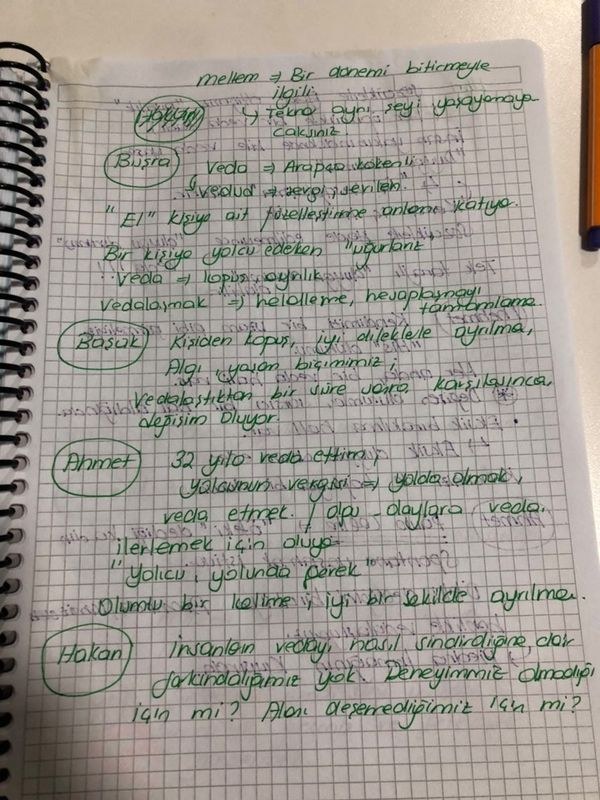 meltem ⇒ Bir dönemi bitirmeyle
ilgili.
Hakan ↳ tekrar aynı şeyi yaşayamaya
caksınız.
Büşra Veda ⇒ Arapça kökenli
"vedud ⇒ sevgi, verilen".
"El" kişiye ait özelleştirme anlamı katıyor.
Bir kişiye yolcu ederken "uğurlarız
Veda ⇒ kopuş, ayrılık
vedalaşmak ⇒ helalleme, hesaplaşmayı
tamamlama.
Başak Kişiden kopuş, iyi dileklerle ayrılma,
Algı, yaşan biçimimiz;
Vedalaştıktan bir süre sonra karşılaşınca,
değişim oluyor.
Ahmet 32 yıla veda ettim,
yolcunun vergisi ⇒ yolda olmak,
veda etmek. / olaylara veda.
ilerlemek için oluyo
"Yolcu, yolunda gerek"
Olumlu bir kelime, iyi bir şekilde ayrılma.
Hakan İnsanların vedayı nasıl sindirdiğine dair
farkındalığımız yok. Deneyimimiz olmadığı
için mi? Alanı deşemediğimiz için mi?